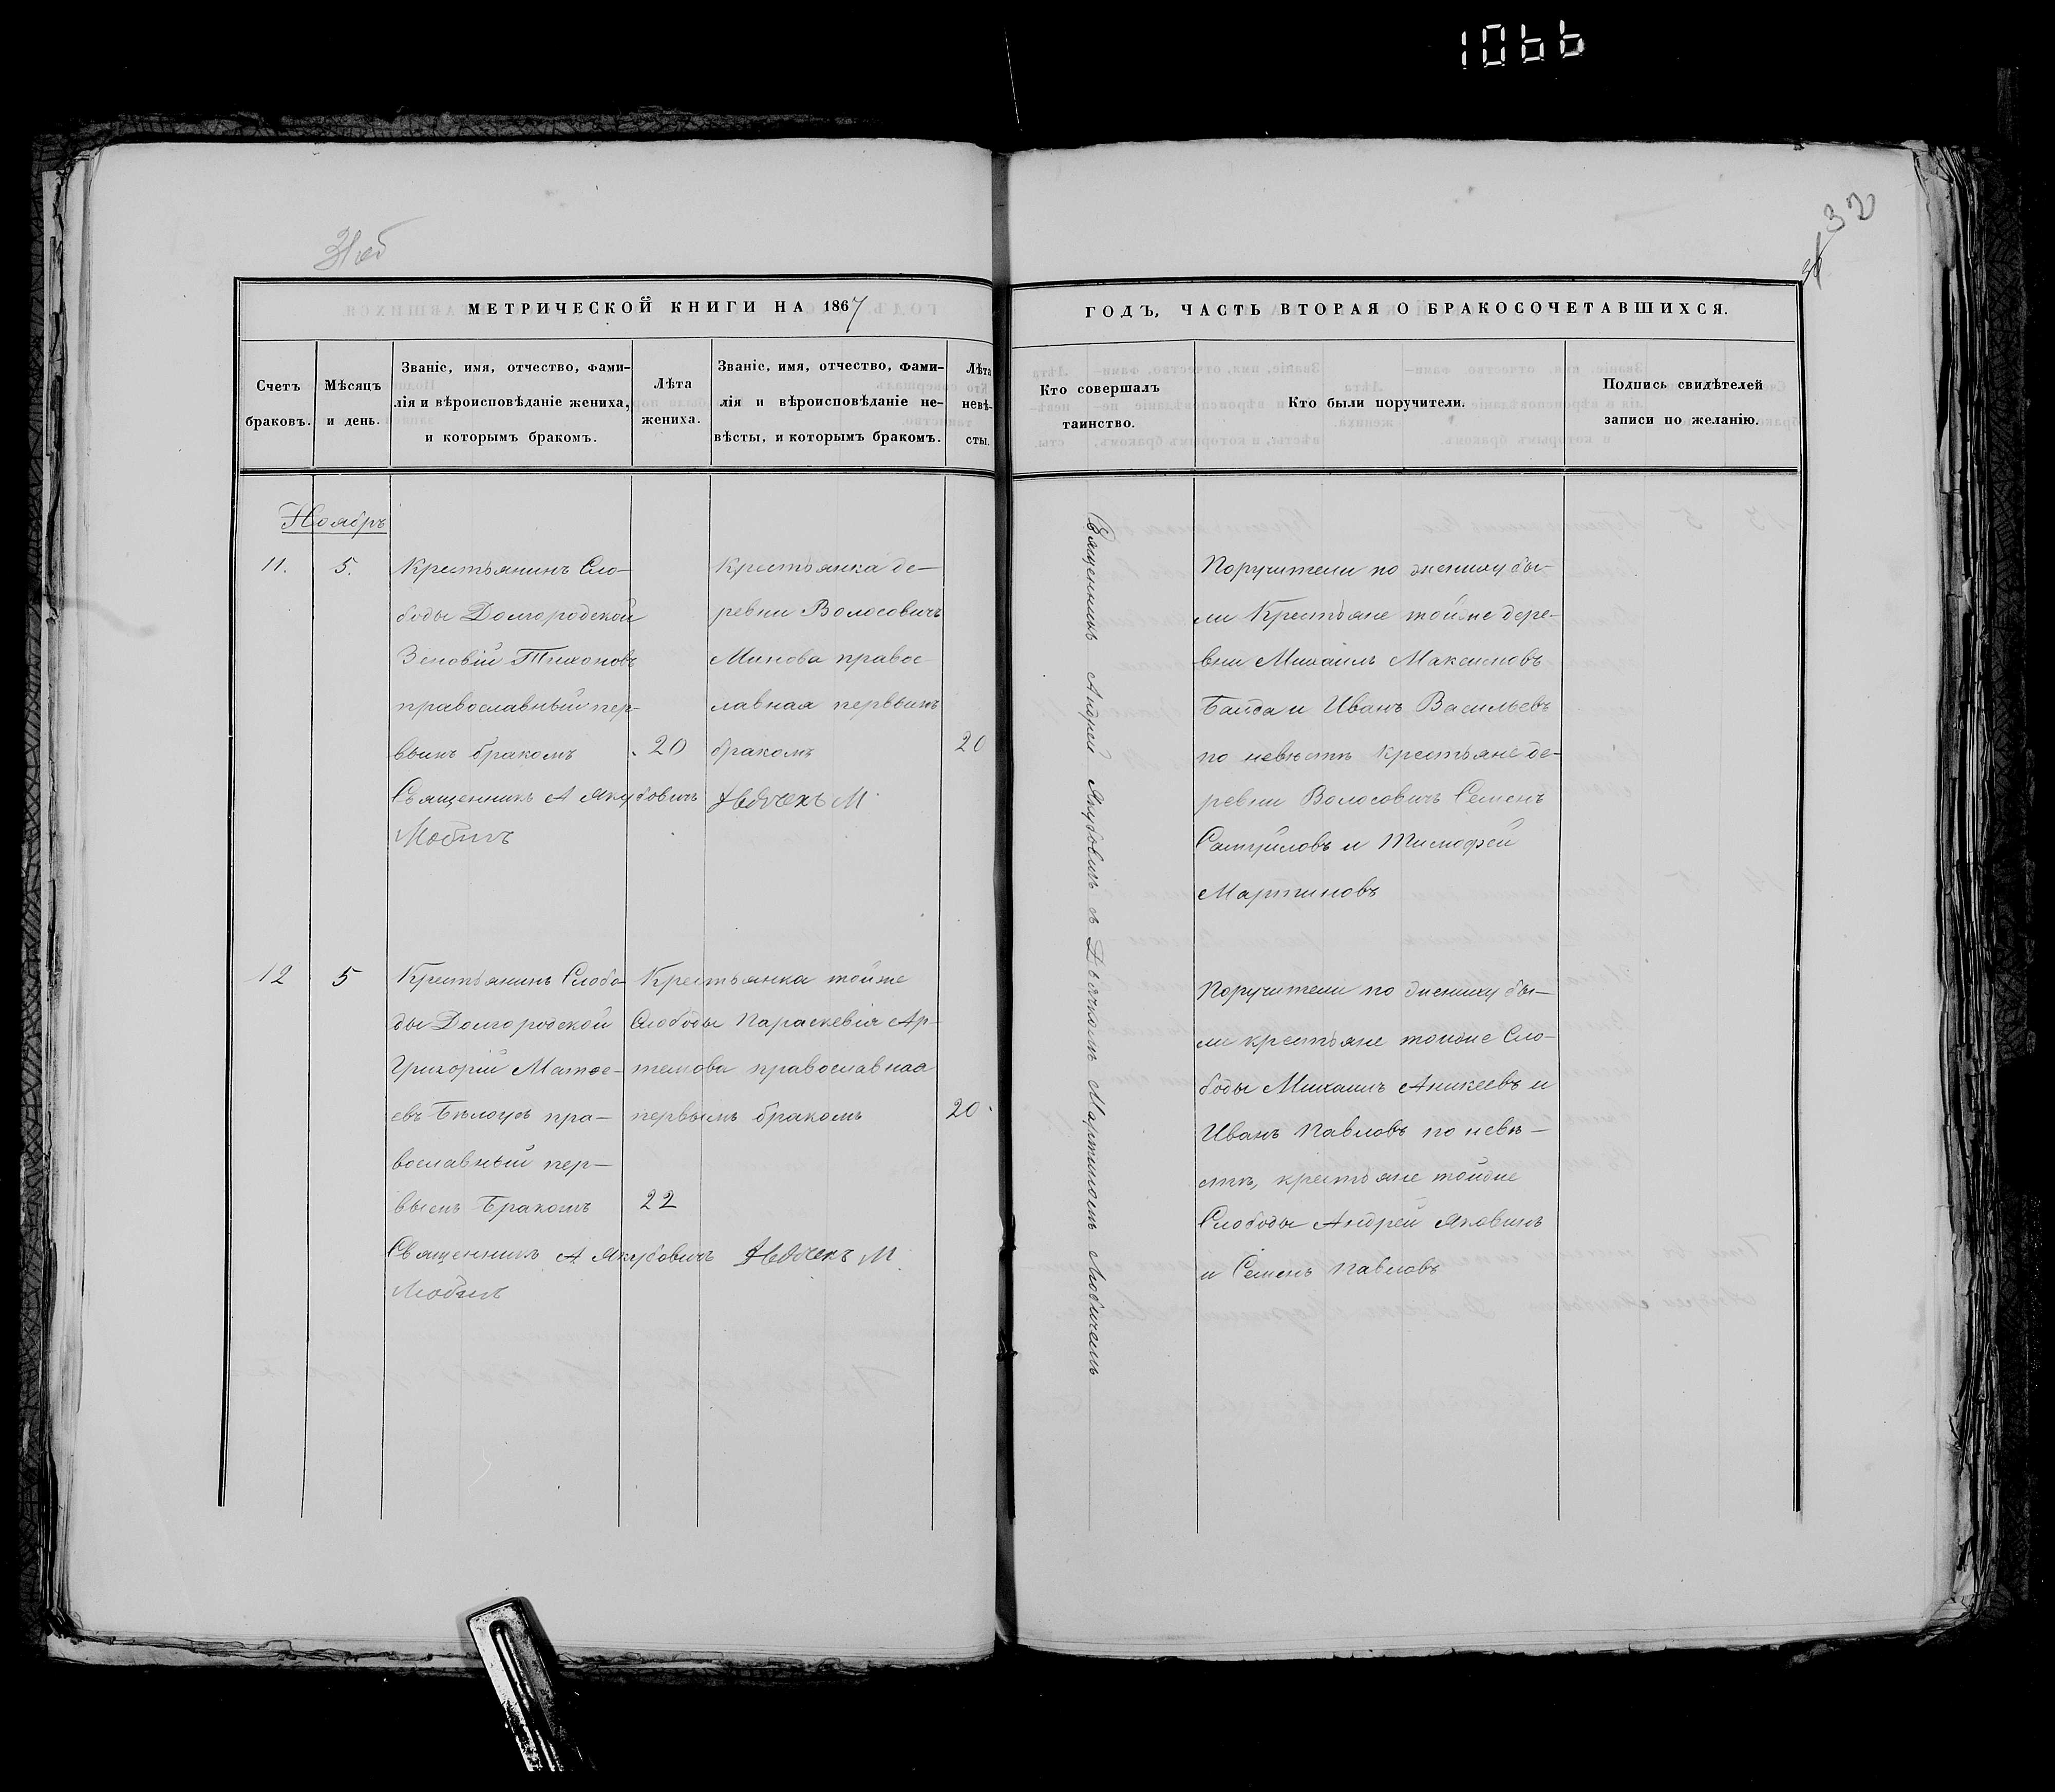 1066
31 об
32
МЕТРИЧЕСКОЙ КНИГИ НА 1867
ГОДЪ, ЧАСТЬ ВТОРАЯ О БРАКОСОЧЕТАВШИХСЯ.
Счетъ
браковъ.
Мѣсяцъ
и день.
Званіе, имя, отчество, фами-
лія и вѣроисповѣданіе жениха,
и которымъ бракомъ.
Лѣта
жениха.
Званіе, имя, отчество, фами-
лія и вѣроисповѣданіе не-
вѣсты, и которымъ бракомъ.
Лѣта
невѣ-
сты.
Кто совершалъ
таинство.
Кто были поручители.
Подпись свидѣтелей
записи по желанію.
Ноябрь
11.
5.
Крестьянинъ Сло-
боды Долгородской
Зеновій Тихоновъ
православный пер-
вымъ бракомъ
20
Крестьянка де-
ревни Волосовичъ
Минова правос-
лавная первымъ
бракомъ
20
Священникъ А Якубовичъ
Священникъ Андрей Якубовичъ съ Дьячкомъ Мартиномъ Любичемъ
Поручители по жениху бы-
ли Крестьяне тойже дере-
вни Михаилъ Максимовъ
Байда и Иванъ Васильевъ
по невѣстѣ Крестьяне де-
ревни Волосовичъ Семенъ
Самуйловъ и Тимофей
Мартиновъ
12
5
Крестьянинъ Слобо-
ды Долгородской
Григорій Матѳе-
евъ Бѣлоусъ пра-
вославный пер-
вымъ Бракомъ
22
Крестьянка тойже
Слободы Параскевія Ар-
темова православная
первымъ бракомъ
20
Священникъ А Якубовичъ
Поручители по жениху бы-
ли крестьяне тойже Сло-
боды Михаилъ Аникеевъ и
Иванъ Павловъ по невѣ-
стѣ, крестьяне тойже
Слободы Андрей Яковинъ
и Семенъ Павловъ